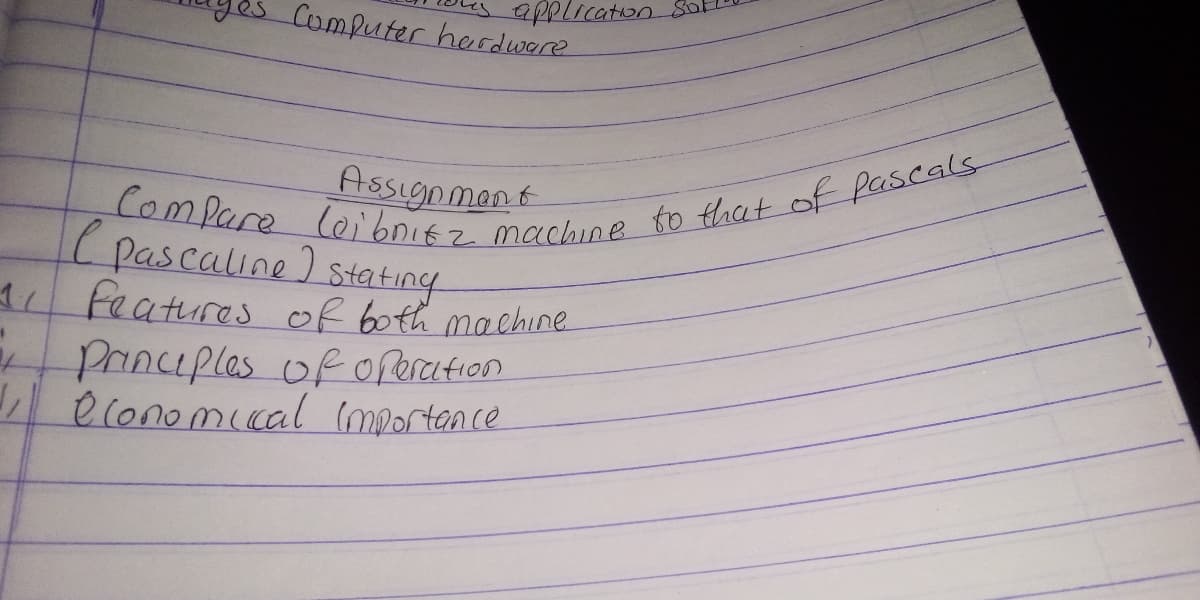 application
Computer hardware
Assignment
Compare leibnitz machine to that of pascals
(pascaline) stating
features of both machine
principles of operation
economical importance